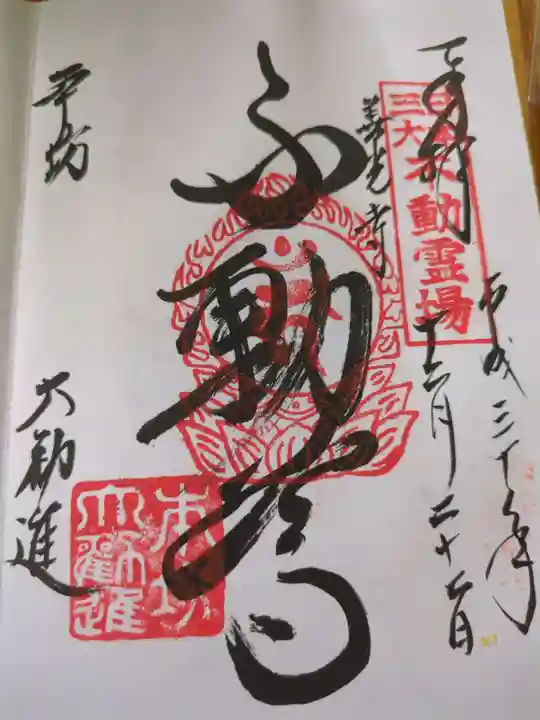 奉拝
日本
三大不動霊場
平成三十年
十二月二十六日
善光寺
不動尊
本坊
大勧進
本坊
大勧進